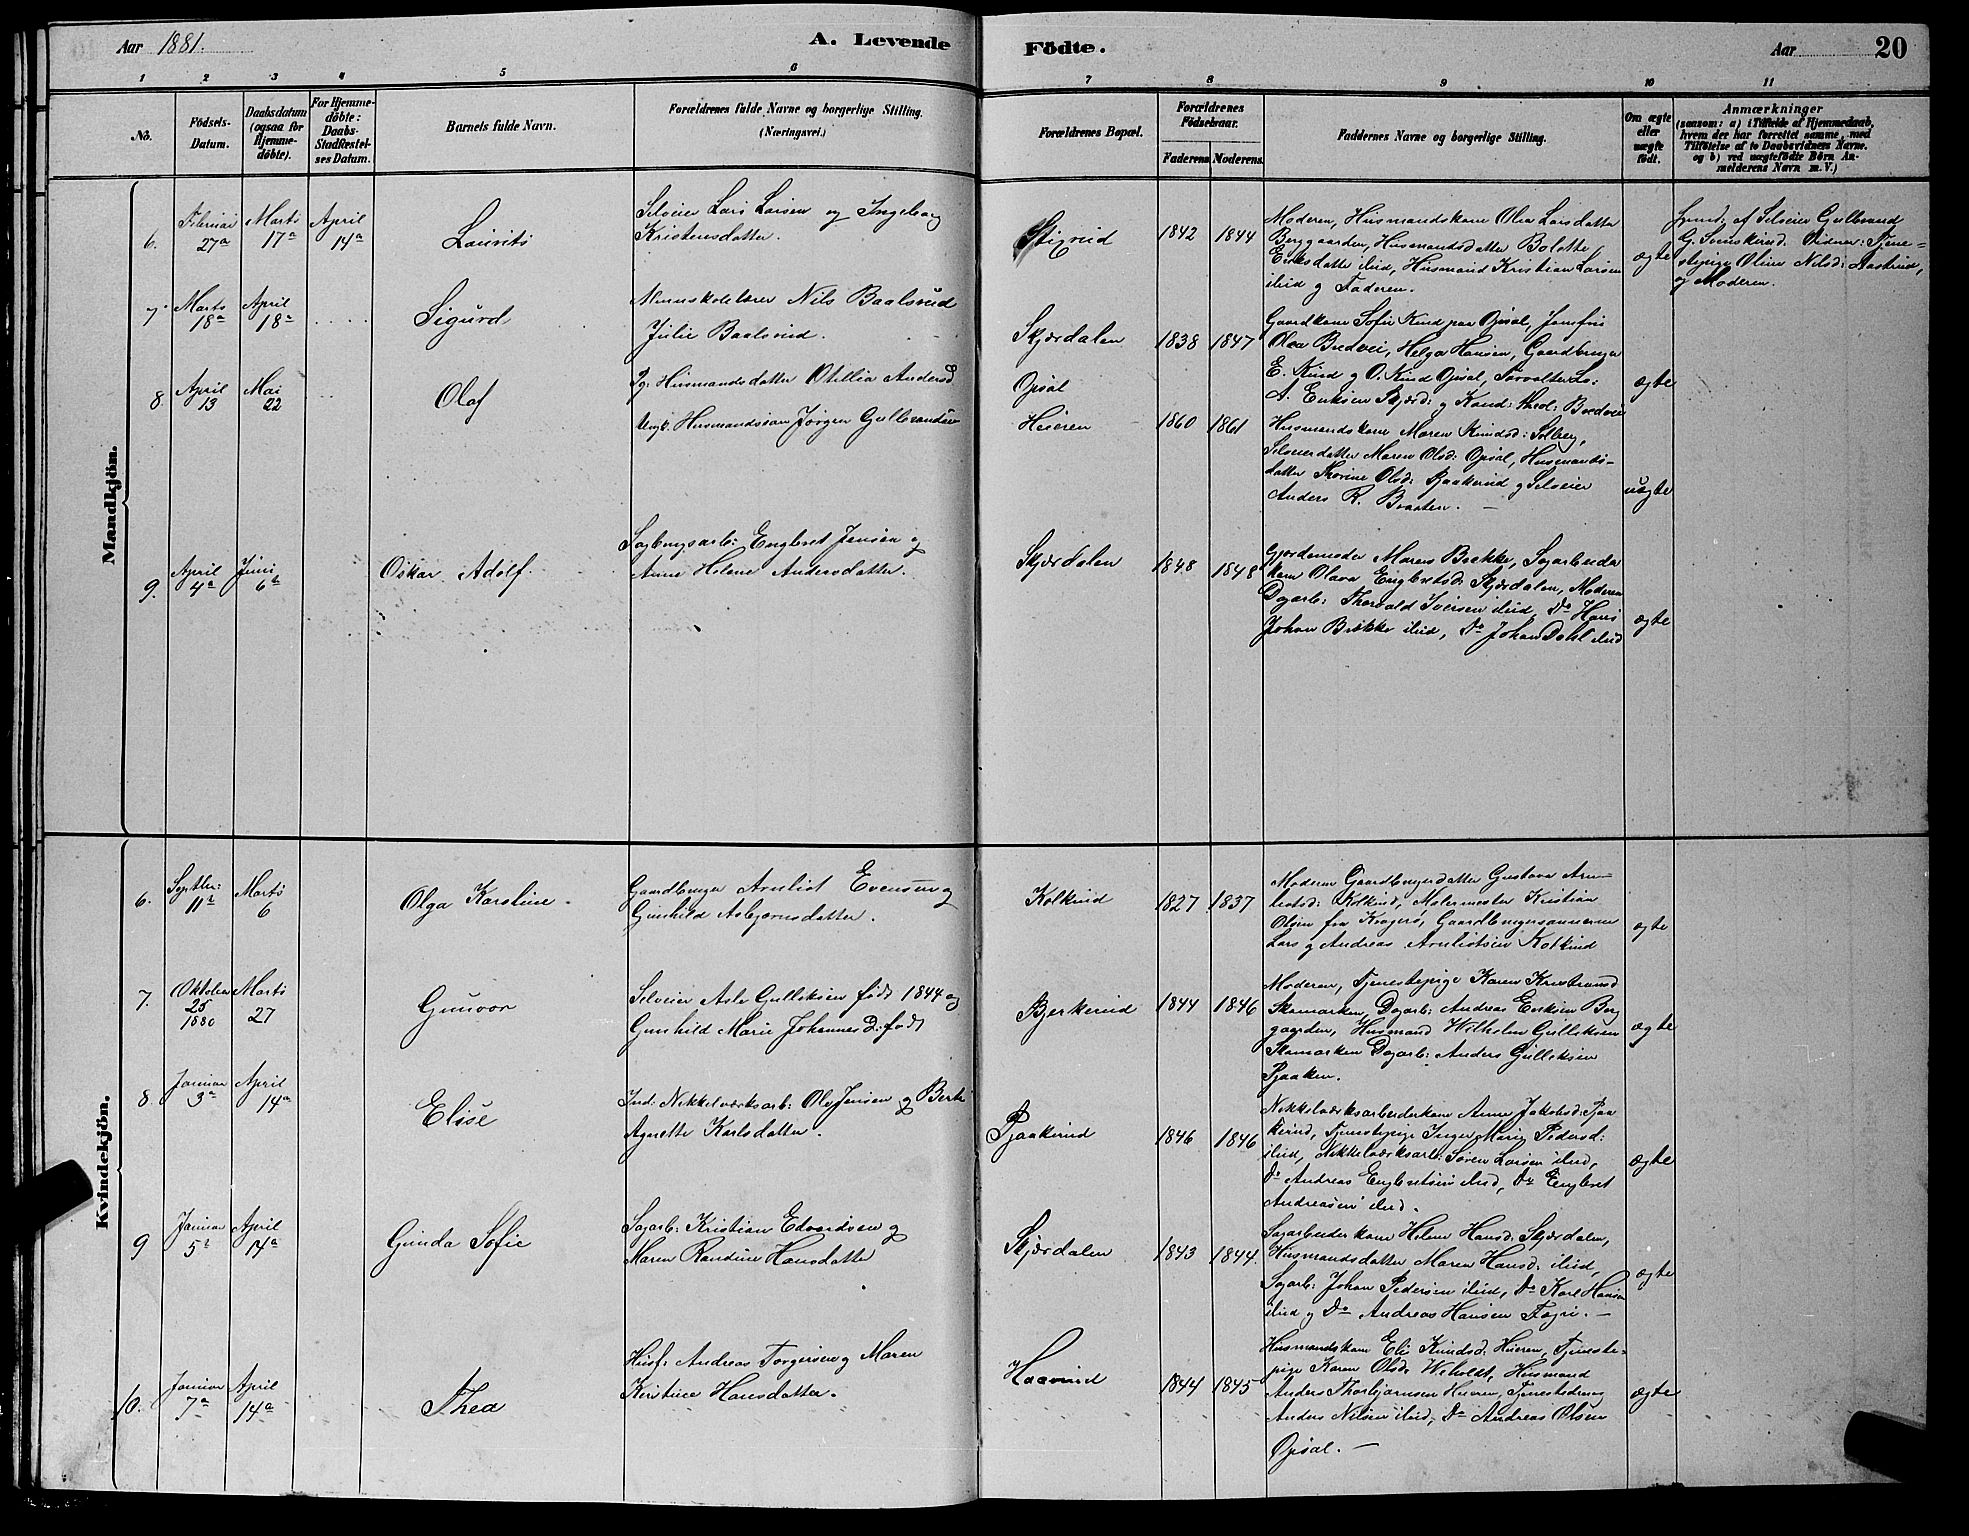 Aar 1881.
A. Levende
Födte.
Aar
20
1 2 3 4 5 6 7 8 9 10 11
No.
Födsels-
Datum.
Daabsdatum
(ogsaa for
Hjemme-
döbte).
For Hjemme-
döbte:
Daabs-
Stadfæstel-
ses Datum.
Barnets fulde Navn.
Forældrenes fulde Navne og borgerlige Stilling.
(Næringsvei.)
Forældrenes Bopæl.
Forældrenes
Födselsaar.
Faderens Moderens
Faddernes Navne og borgerlige Stilling.
Om ægte
eller
uægte
födt.
Anmærkninger
(saasom: a) i Tilfælde af Hjemmedaab,
hvem der har forrettet samme, med
Tilföielse af to Daabsvidners Navne.
og b) ved uægtefödte Börn An-
melderens Navn m. V.)
Mandkjön.
6.
Februar
27de
Marts
17de
April
14de
Laurits
Selveier Lars Larsen og Ingeborg
Kristensdatter.
Stigrud
1842 1844
Moderen, Husmandskone Olea Larsdatter
Berggaarden, Husmandsdatter Bolette
Eriksdatter ibid, Husmand Kristian Larsen
ibid og Faderen.
ægte
af Selveier Gulbrand
G. Svenskerud. Vidner: Tjene-
stepige Oline Nilsd: Aastrud,
og Moderen.
7.
Marts
18de
April
18de
Sigurd
Nils Baalsrud
Julie Baalsrud.
Skjærdalen
1838 1847
Gaardkone Sofie Kind paa Opsal, Jomfru
Olea Bredvei, Helga Hansen, Gaardbruger
E. Kind og O. Kind Opsal,
A. Eriksen Skjærd: og Kand: theol: Bredvei
ægte
8.
April
13
Mai
22
Olaf
Pg: Husmandsdatter Otillia Andersd
Ungk. Husmandssøn Jørgen Gulbrandsen
Opsal
Hueren
1860 1861
Husmandskone Maren Knudsd: Solberg,
Selveierdatter Maren Olsd: Opsal, Husmands-
datter Thorine Olsd: Pjaakerud og Selveier
Anders R. Braaten.
uægte
9.
April
4de
Juni
6te
Oskar Adolf.
Sagbrugsarb: Engbret Jensen og
Anne Helene Andersdatter.
Skjærdalen
1848 1848
Gjordemoder Maren Bække, Sagarbeider
kone Olava Engbretsd: Skjærdalen, Moderen
Dagarb: Thorvald Iversen ibid, Do Hans
Johan Bække ibid, Do Johan Dahl ibid
ægte
Kvindekjön.
6.
Septbr:
11te
Marts
6
Olga Karoline.
Gaardbruger Arnliot Evensen og
Gunhild Asbjørnsdatter.
Kolkind
1827 1837
Moderen Gaardbrugerdatter Gustava Arn-
liotsd: Kolkind, Malermester Kristian
Olsen fra Kragerø, Gaardbrugersønnerne
Lars og Andreas Arnliotsen Kolkind
ægte
7.
Oktober
25
1880
Marts
27
Gunvor
Selveier Asle Gulliksen født 1844 og
Gunhild Marie Johannes D: født
Bjerkerud
1844 1846
Moderen, Tjenestepige Karen
Skamarken, Dagarb: Andreas Eriksen Berg
gaarden, Husmand Wilhelm Gulliksen
Skamarken Dagarb: Anders Gulliksen
Pjaaken.
ægte
8.
Januar
3de
April
14de
Elise
Ind: Nikkelværksarb: Ole Jensen og Berte
Agnette Karlsdatter.
Pjaakerud
1846 1846
Nikkelværksarbeiderkone Anne Jakobsd: Pjaa
kerud, Tjenestepige Inger Marie Pedersd:
ibid, Nikkelværksarb: Søren Larsen ibid,
Do Andreas Engbretsen ibid, Do Engbret
Andreasen ibid.
ægte
9
Januar
5te
April
14de
Gunda Sofie
Sagarb: Kristian Edvardsen og
Maren Randine Hansdatter
Skjærdalen
1843 1844.
Sagarbeiderkone Helene Hansd: Skjærdalen,
Husmandsdatter Maren Hansd: ibid,
Sagarb: Johan Pedersen ibid, Do Karl Hansen
ibid og Do Andreas Hansen Fagri.
ægte
10.
Januar
7de
April
14de
Thea
Husf: Andreas Torgersen og Maren
Kristine Hansdatter.
Haavrud
1844 1845
Husmandskone Eli Knudsd: Hueren, Tjeneste-
pige Karen Olsd: Weholdt, Husmand
Anders Thorbjørnsen Hueren, Tjenestedreng
Anders Nilsen ibid, Do Andreas Olsen
Opsal.
ægte